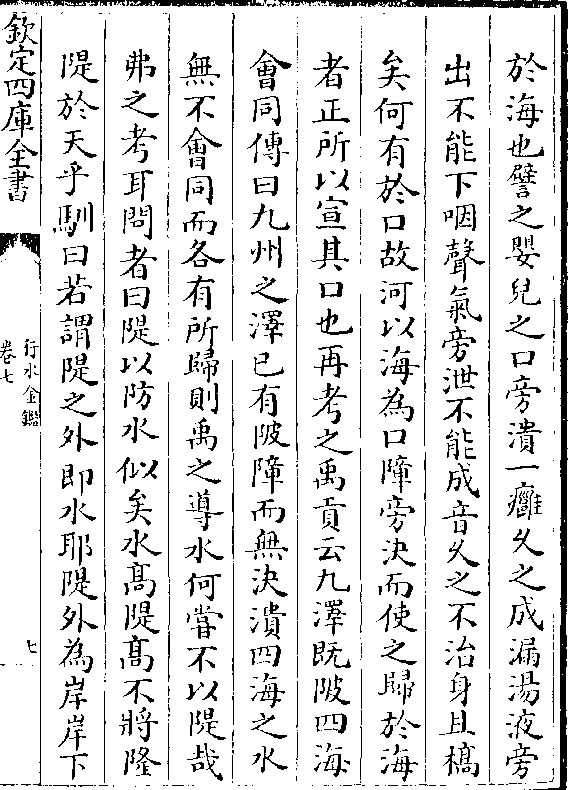 於海也譬之嬰兒之口旁潰一癰久之成漏湯液旁
出不能下咽聲氣旁泄不能成音久之不治身且槁
矣何有於口故河以海為口障旁決而使之歸於海
者正所以宣其口也再考之禹貢云九澤既陂四海
會同傳曰九州之澤已有陂障而無決潰四海之水
無不會同而各有所歸則禹之導水何嘗不以隄哉
弗之考耳問者曰隄以防水似矣水髙隄髙不將隆
隄於天乎馴曰若謂隄之外即水耶隄外為岸岸下
欽定四庫全書
行水金鑑
卷七
七